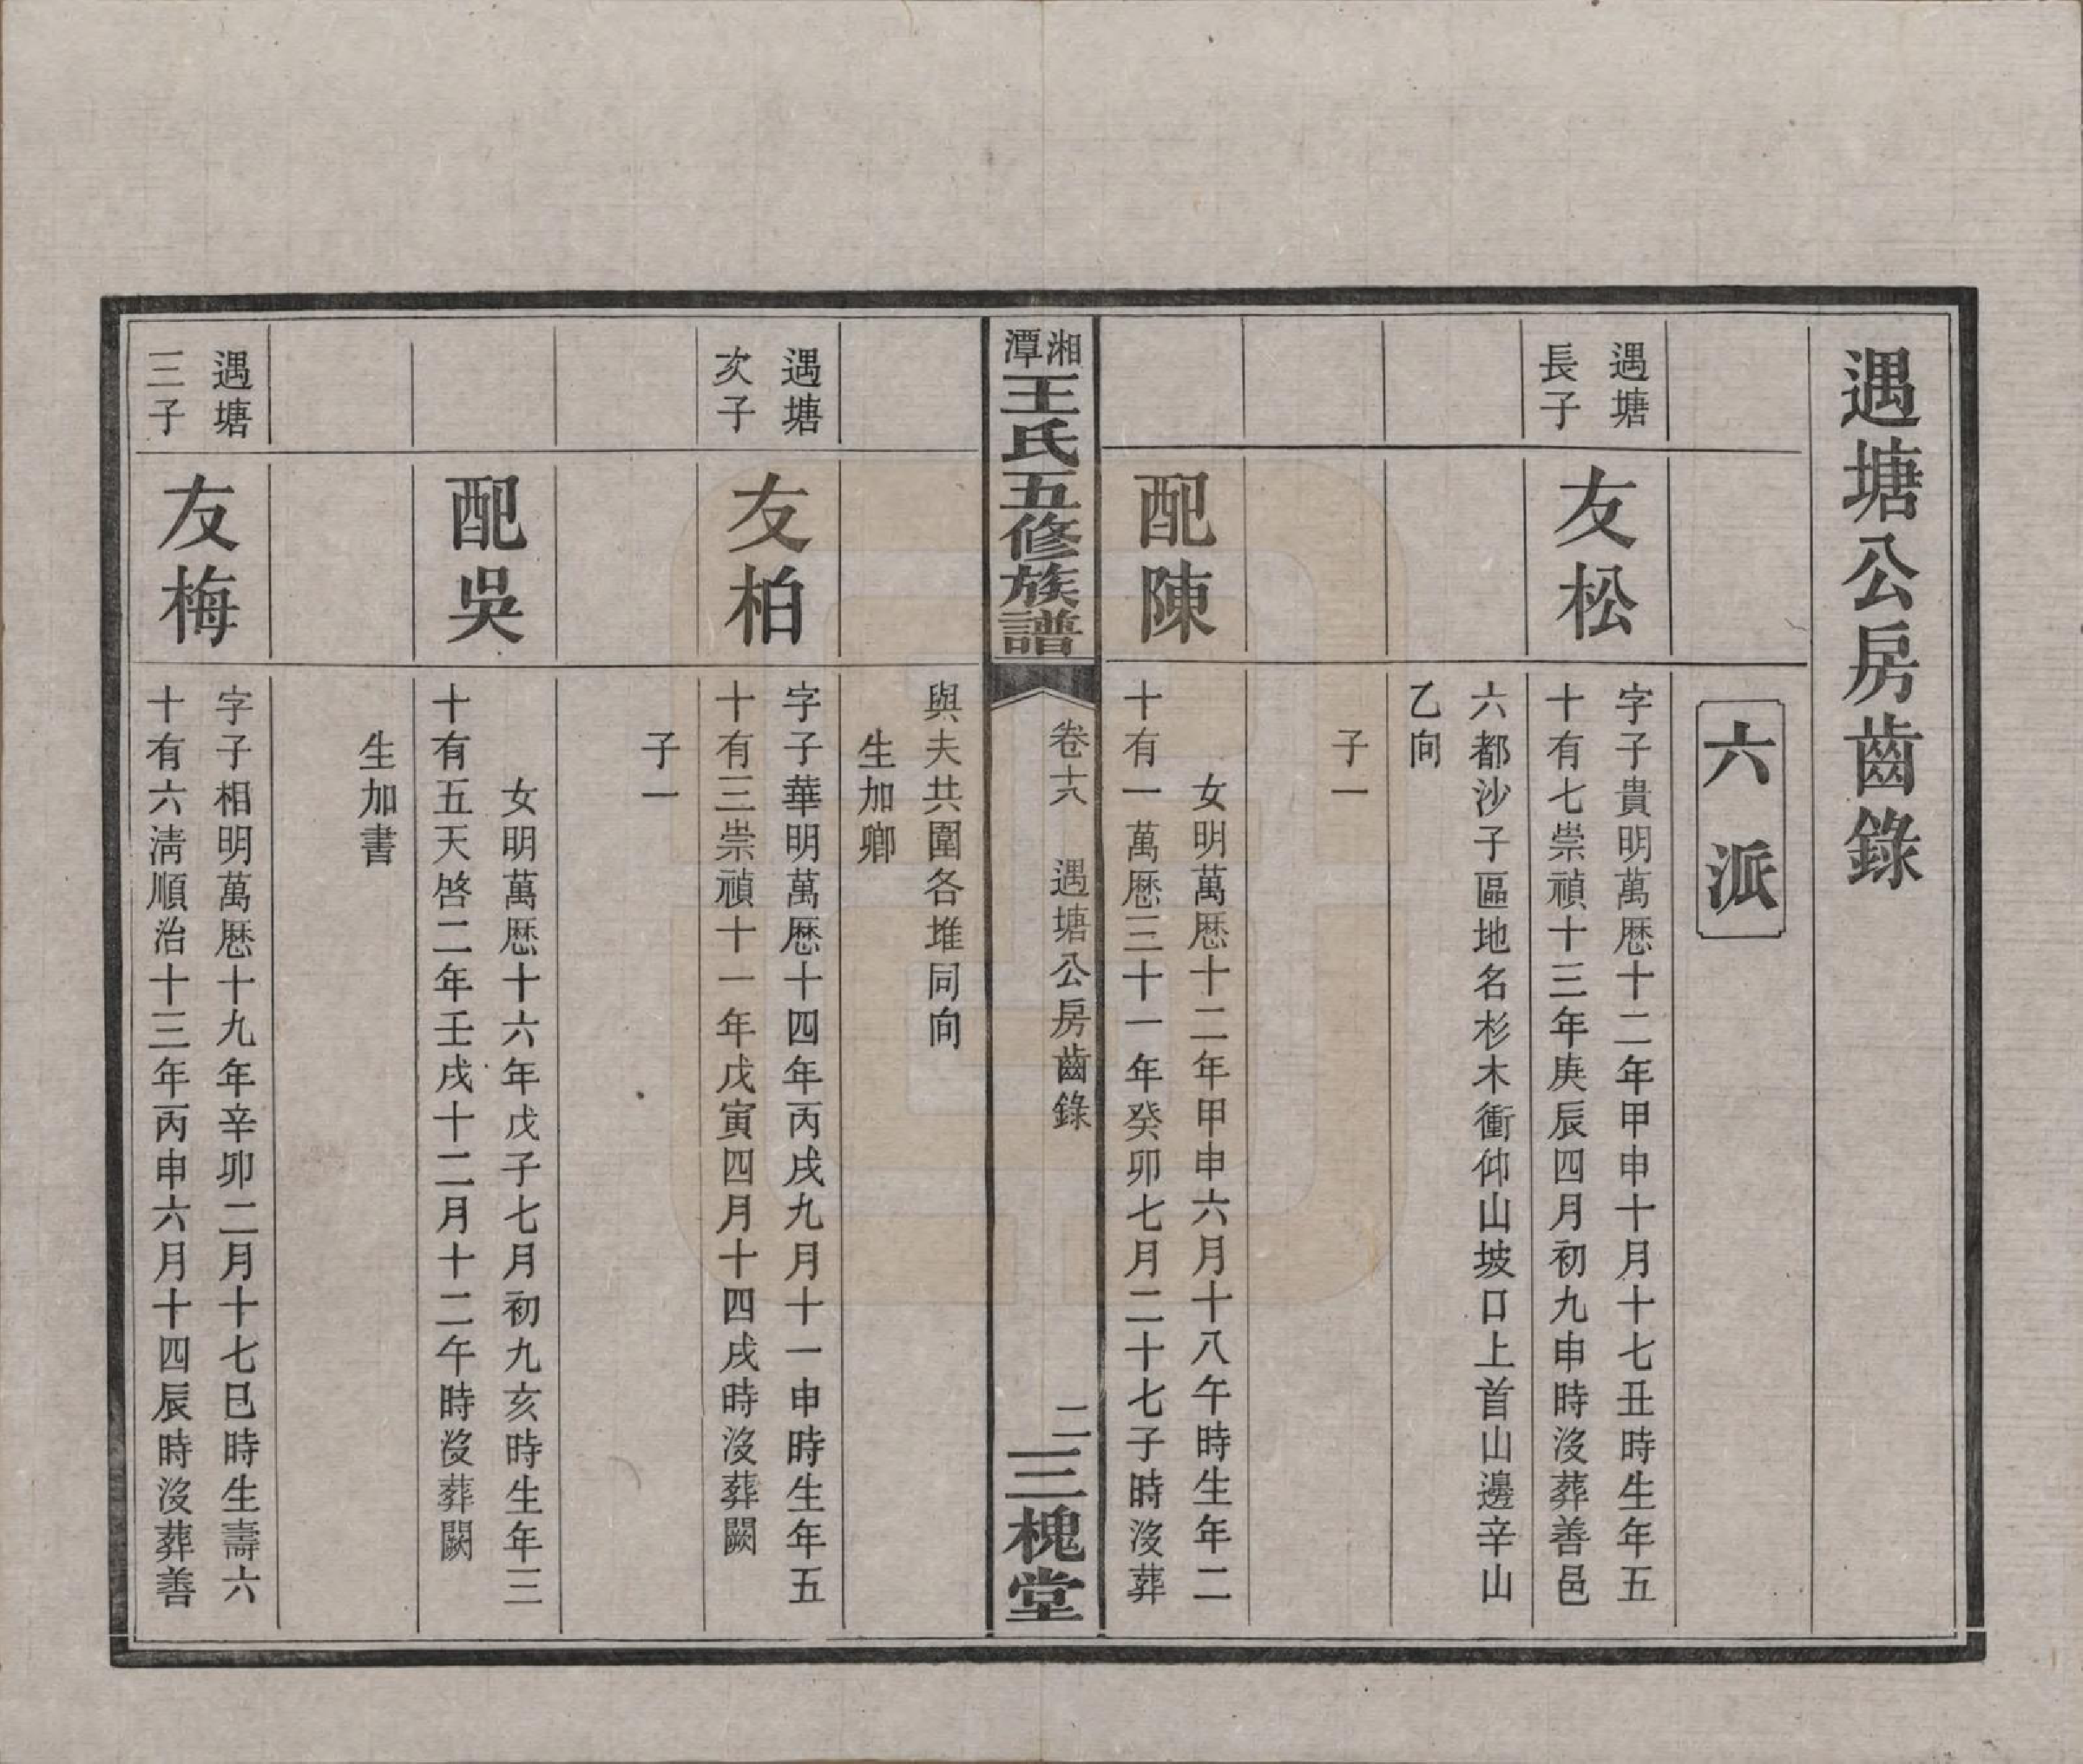 遇塘公房齒錄
六派
遇塘
長子
友松
字子貴明萬厯十二年甲申十月十七丑時生年五
十有七崇禎十三年庚辰四月初九申時沒葬善邑
六都沙子區地名杉木衝仰山坡口上首山邊辛山
乙向
子一
配陳
女明萬厯十二年甲申六月十八午時生年二
十有一萬厯三十一年癸卯七月二十七子時沒葬
湘潭王氏五修族譜
卷十六　遇塘公房齒錄
二
三槐堂
與夫共圍各堆同向
生加鄉
遇塘
次子
友柏
字子華明萬厯十四年丙戌九月十一申時生年五
十有三崇禎十一年戊寅四月十四戌時沒葬闕
子一
配吳
女明萬厯十六年戊子七月初九亥時生年三
十有五天啓二年壬戌十二月十二午時沒葬闕
生加書
遇塘
三子
友梅
字子相明萬厯十九年辛卯二月十七巳時生壽六
十有六淸順治十三年丙申六月十四辰時沒葬善